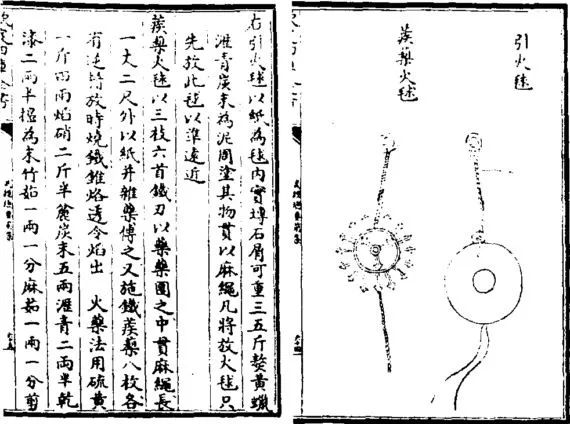 引火毬
蒺藜火毬
右引火毬以紙為毬内實塼石屑可重三五斤熬黃蠟
瀝青炭末為泥周塗其物貫以麻繩凡將放火毬只
先放此毬以準遠近
蒺藜火毬以三枝六首鐵刃以藥藥團之中貫麻繩長
一丈二尺外以紙并雜藥傅之又施鐵蒺藜八枚各
有逆鬚放時燒鐵錐烙透令焰出 火藥法用硫黃
一斤四兩焰硝二斤半麄炭末五兩瀝青二兩半乾
漆二兩半擣為末竹茹一兩一分麻茹一兩一分剪